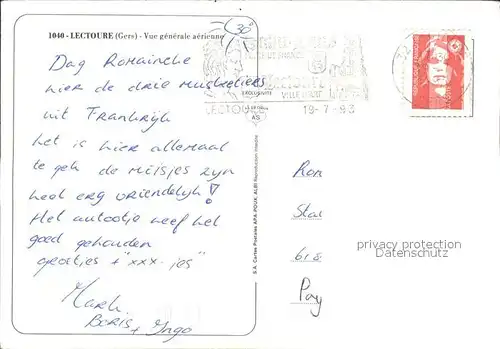 1040 - LECTOURE (Gers) - Vue générale aérienne
30°
Dag Romainche
hier de drie musketiers
uit Frankrijk
het is hier allemaal
te gek de meisjes zyn
heel erg vriendelyk!
Het autootje heef het
goed gehouden
groetjes + "xxx-jes"
Mark
Boris + Ingo
LECTOURE
19-7-93
VILLE D'ART
S.A. Cartes Postales APA-POUX, ALBI Reproduction interdite
REPUBLIQUE FRANÇAISE
Ron
Stat
618
Pay
privacy protection
Datenschutz